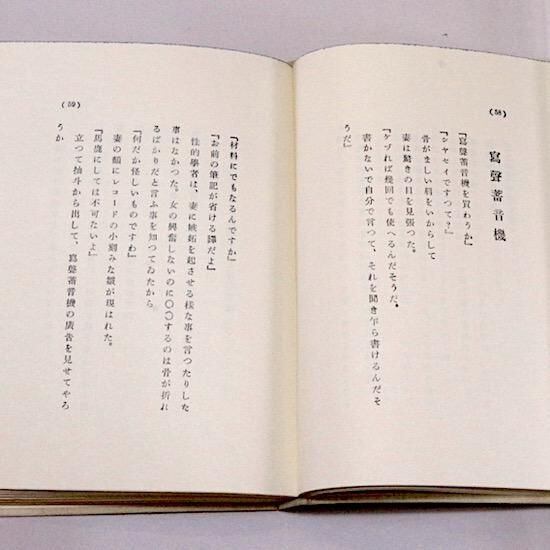 (58)
寫聲蓄音機
『寫聲蓄音機を買わうか』
『シヤセイですつて？』
骨がましい肩をいからして
妻は驚きの目を見張つた。
『ケヅれば幾回でも使へるんだそうだ。
書かないで自分で言つて、それを聞き乍ら書けるんだそ
うだ』
(59)
『材料にでもなるんですか』
『お前の筆記が省ける譯だよ』
性的學者は、妻に嫉妬を起させる樣な事を言つたりした
事はなかつた。女の興奮しないのに〇〇するのは骨が折れ
るばかりだと言ふ事を知つてゐたから
『何だか怪しいものですわ』
妻の顏にレコードの小刻みな皺が現はれた。
『馬鹿にしては不可ないよ』
立つて抽斗から出して、寫聲蓄音機の廣告を見せてやろ
うか